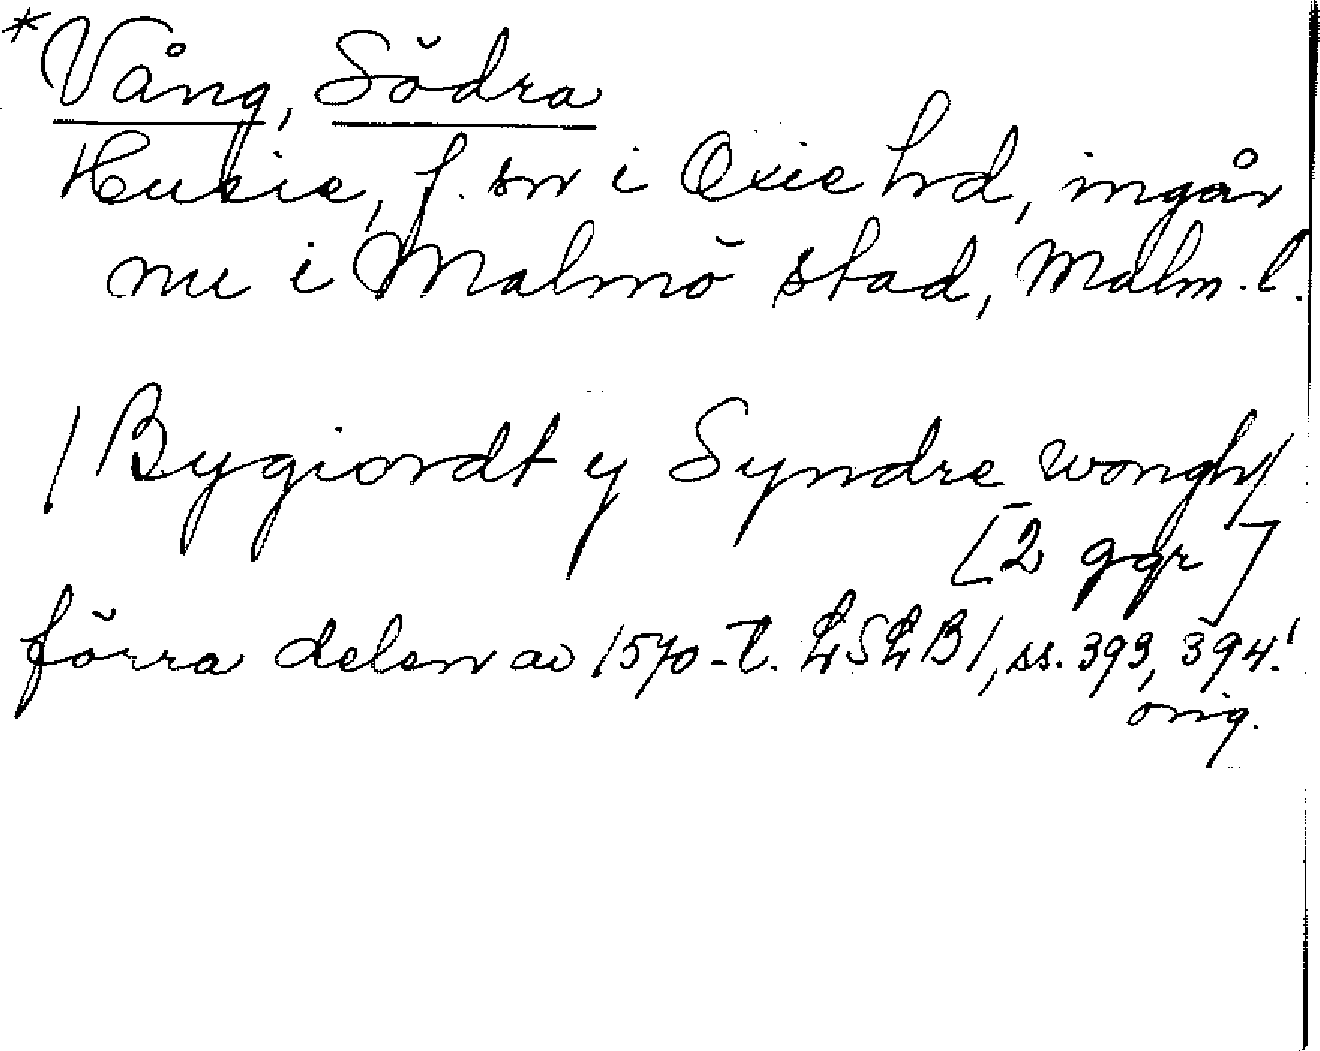 *Vång, Södra
Husie, f. sn i Oxie hd, ingår
nu i Malmö stad, Malm. l.
/Bygiordt y Syndre wongh/
[2 ggr]
förra delen av 1570-t. LSLB1, ss. 393, 394.!
orig.